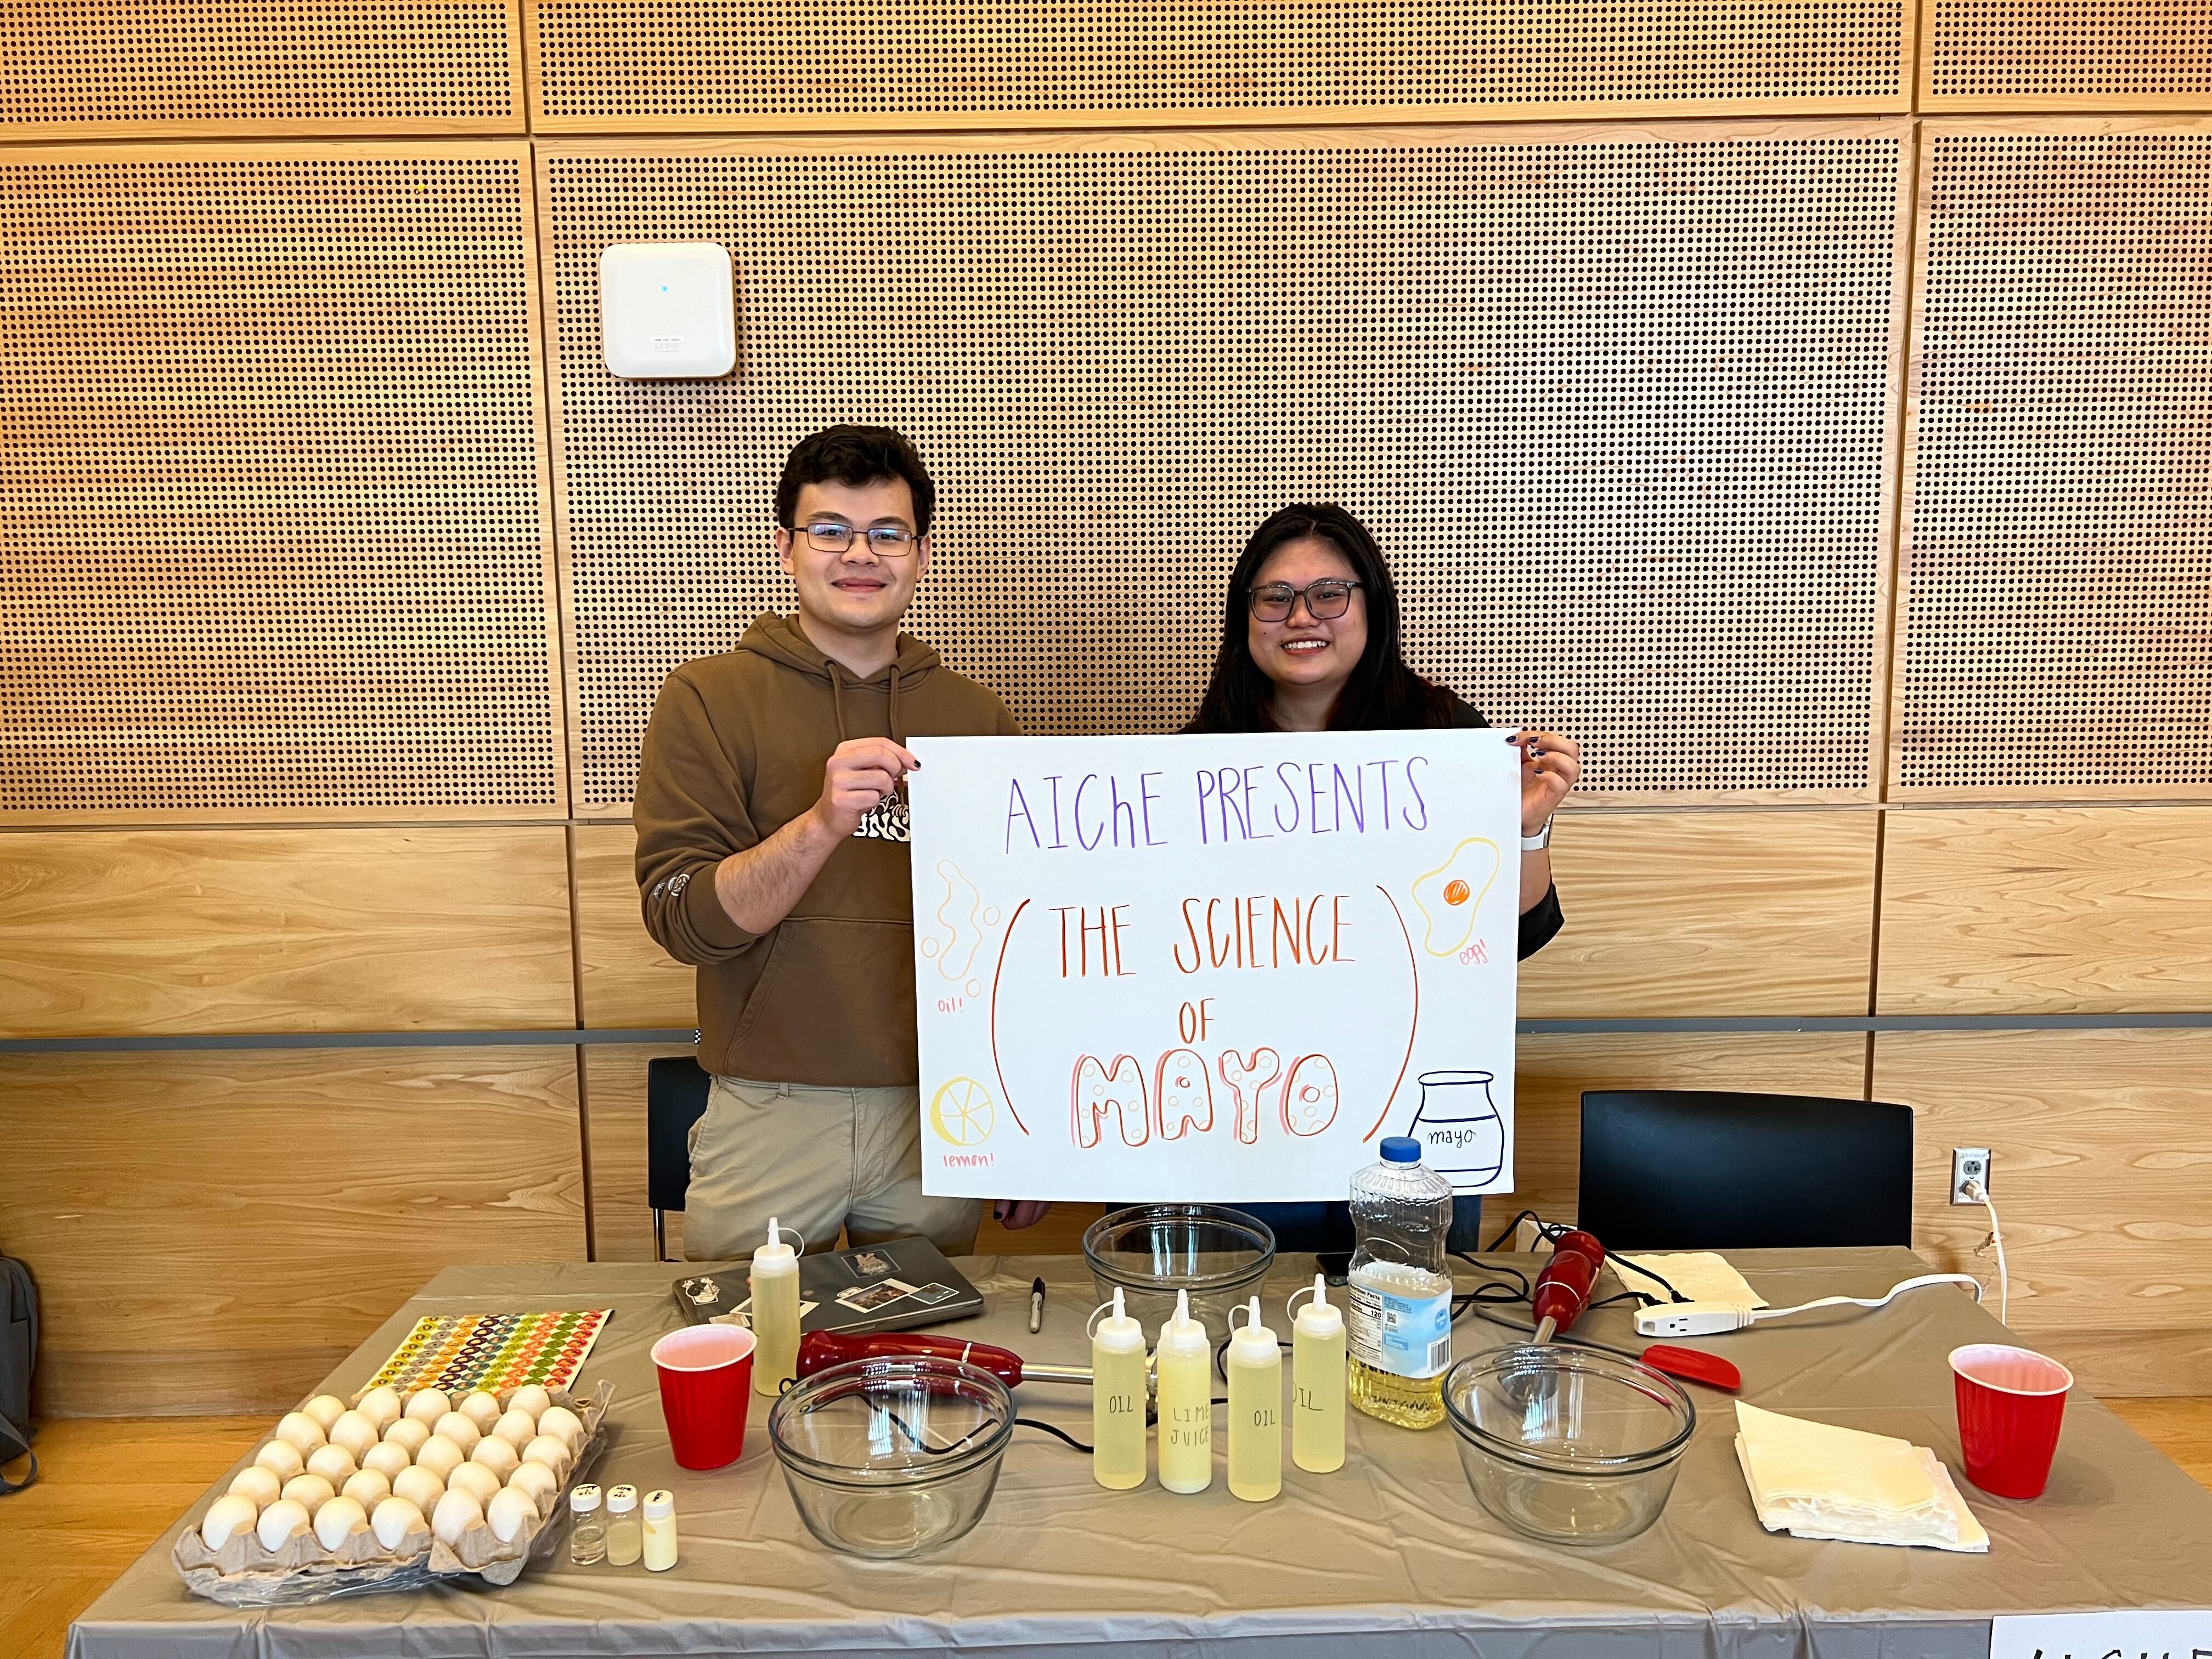 AIChE PRESENTS
THE SCIENCE
OF
MAYO
oil!
egg!
lemon!
mayo
OIL
LIME
JUICE
OIL
OIL
120